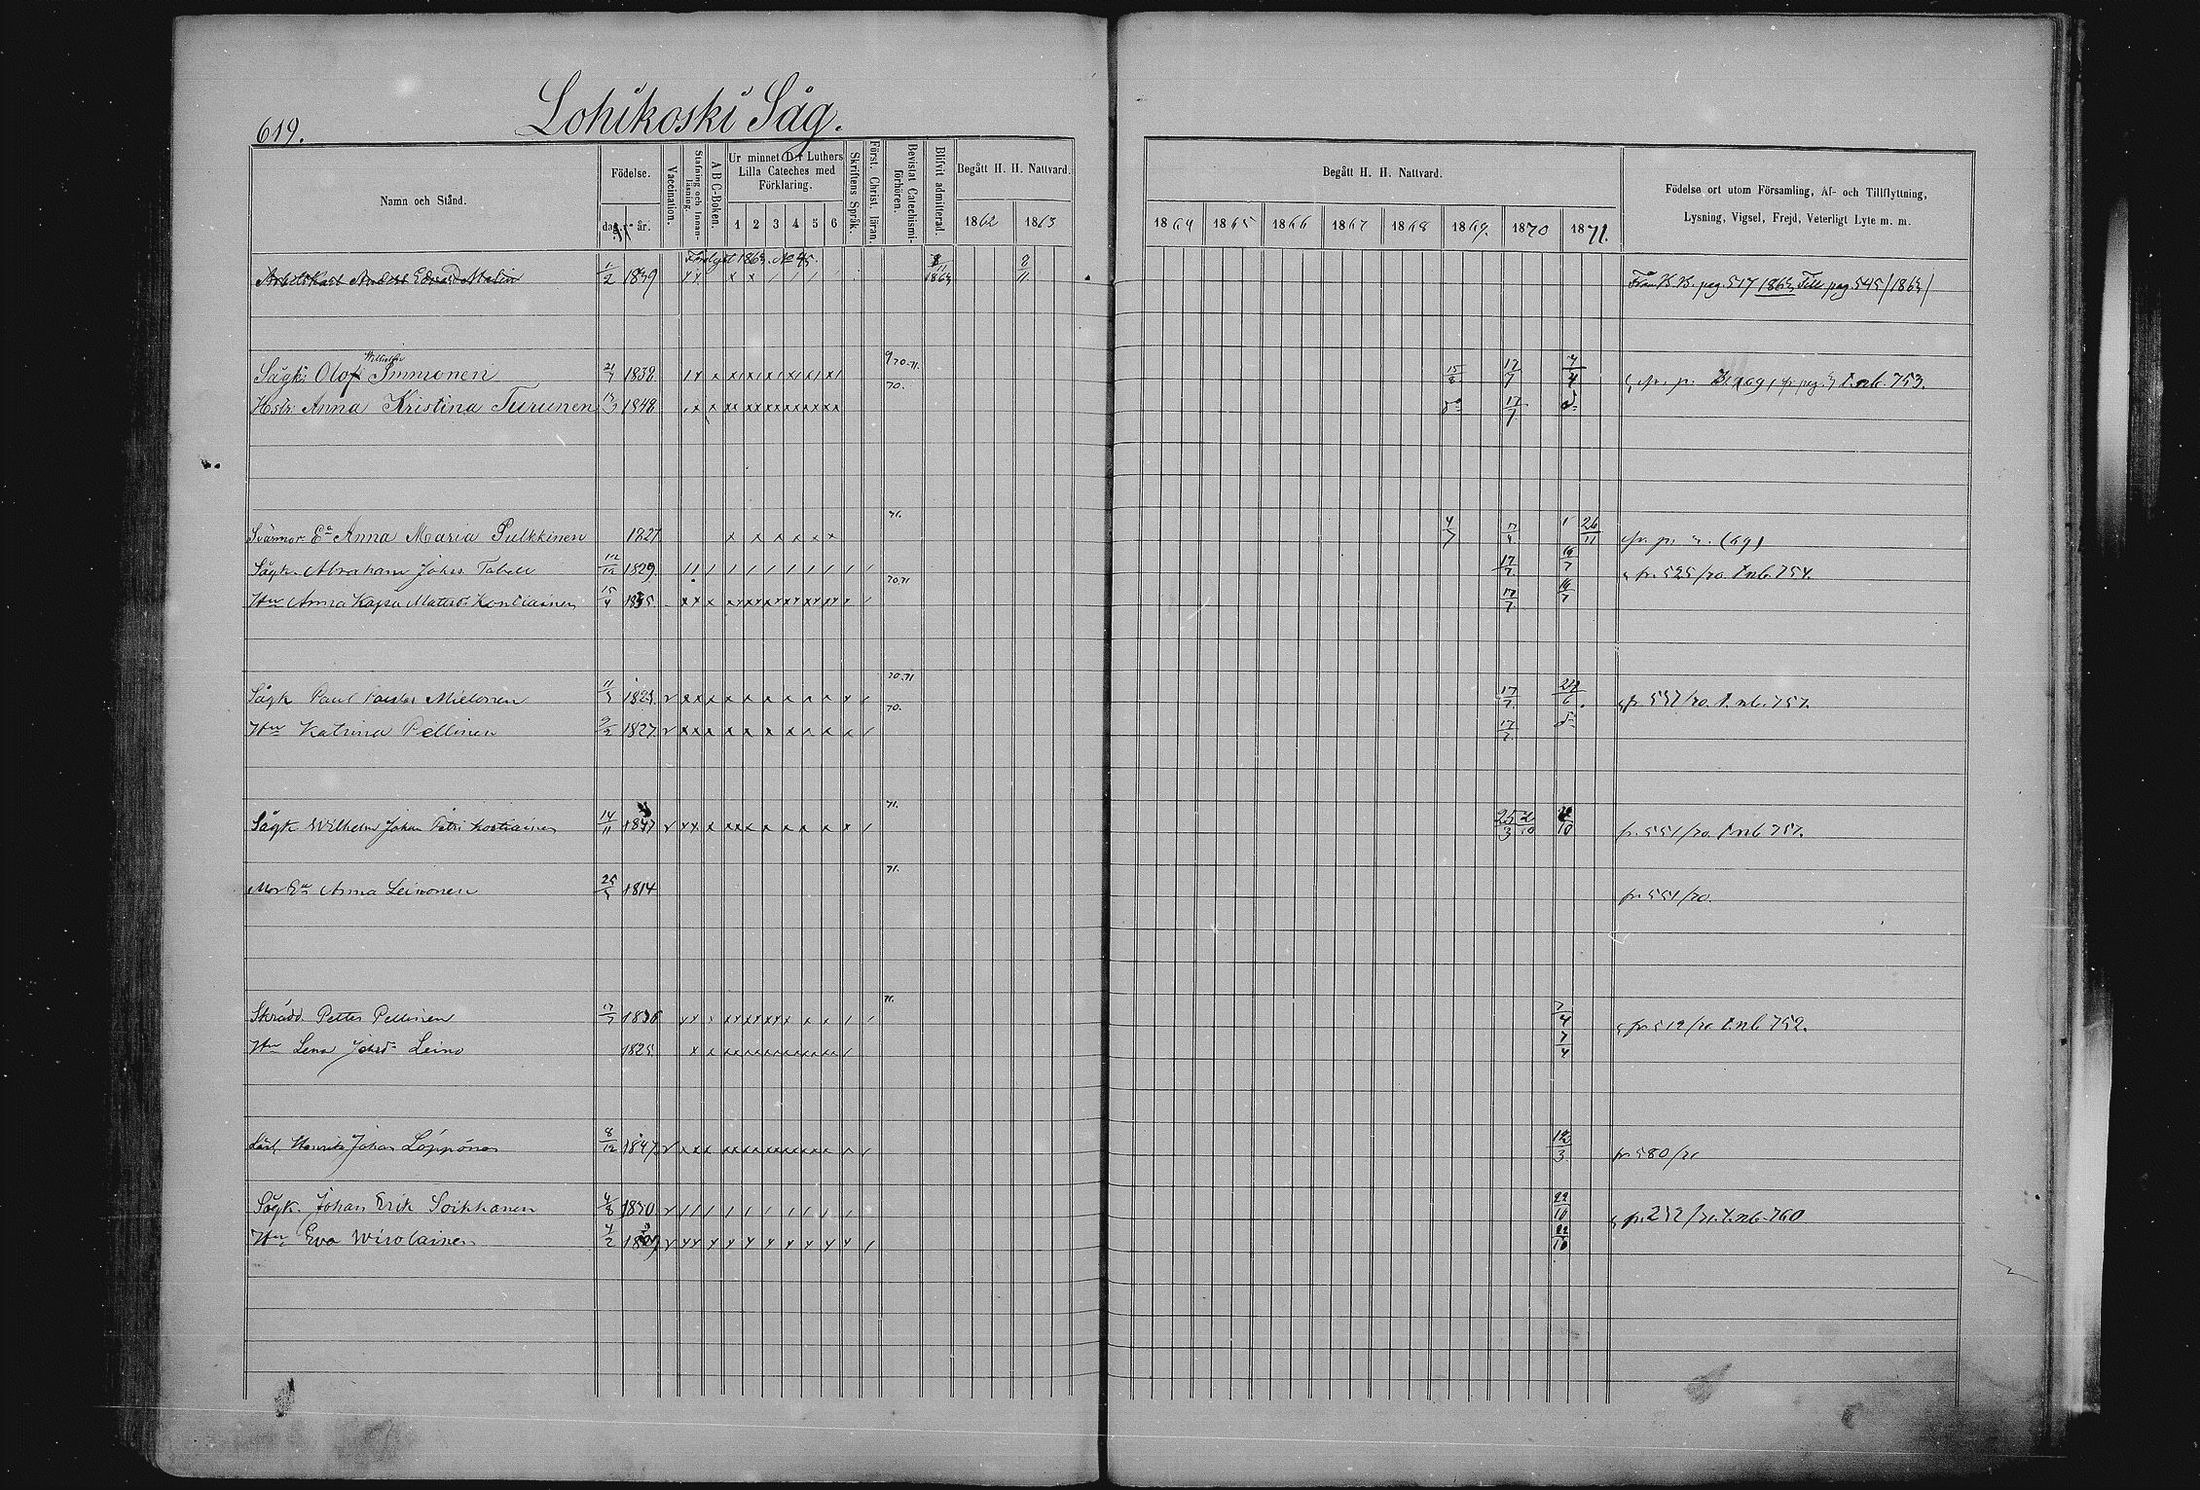 619.
Lohikoski Såg.
Namn och Stånd.
Födelse.
dag.
år.
Vaccination.
Stafning och Innan-läsning.
A B C-Boken.
Ur minnet D:r Luthers Lilla Cateches med Förklaring.
1 2 3 4 5 6
Skriftens Språk.
Först. Christ. läran.
Bevistat Catechismi-förhören.
Blifvit admitterad.
Begått H. H. Nattvard.
1862 1863
Begått H. H. Nattvard.
1864 1865 1866 1867 1868 1869. 1870 1871.
Födelse ort utom Församling, Af- och Tillflyttning,
Lysning, Vigsel, Frejd, Veterligt Lyte m. m.
1863. No 45.
Anders Edvard Malin 1/2 1839 1863 2/11 Från K.B. pag. 517 1863. Till pag. 545/1863/
Wilhelm
Sågk: Olof Immonen 21/7 1838 70.71. 15/8 17/7 7/4 n.b. 753.
Hstr Anna Kristina Turunen 1848 70. do 17/7 do
Svärmor Ea Anna Maria Pulkkinen 1827 71. 4/7 26/11 (69)
Sågk. Abraham Johs Tabell 1829 17/7 16/7 fr. 525/70 t. nb. 754.
Hu Anna Kajsa Mattsdr Kontiainen 15/4 1835 70.71 17/7 16/7
Sågk Paul Paulss Mielonen 11/3 70.71 17/7 24/6 fr. 537/70. t. nb. 757.
Hu Katrina Pellinen 1827 70. 17/7 do
Sågk Wilhelm Johan Petri Kontiainen 14/11 71. 25/3 2/10 fr. 551/70. t. nb 757.
Mor Ea Anna Leinonen 1814 71. fr. 551/70.
Skrädd. Petter Pellinen 17/7 1836 71. 7/4 fr. 512/70 t. nb. 752.
Hu Lena Johsdr Leino 1825 7/4
Henrik Johan Löppönen 8/12 1847 12/3 fr 580/71
Sågk. Johan Erik Soikkanen 4/8 22/10 fr. 232/71. t. nb. 760
Hu Eva Wirolainen 4/2 22/10